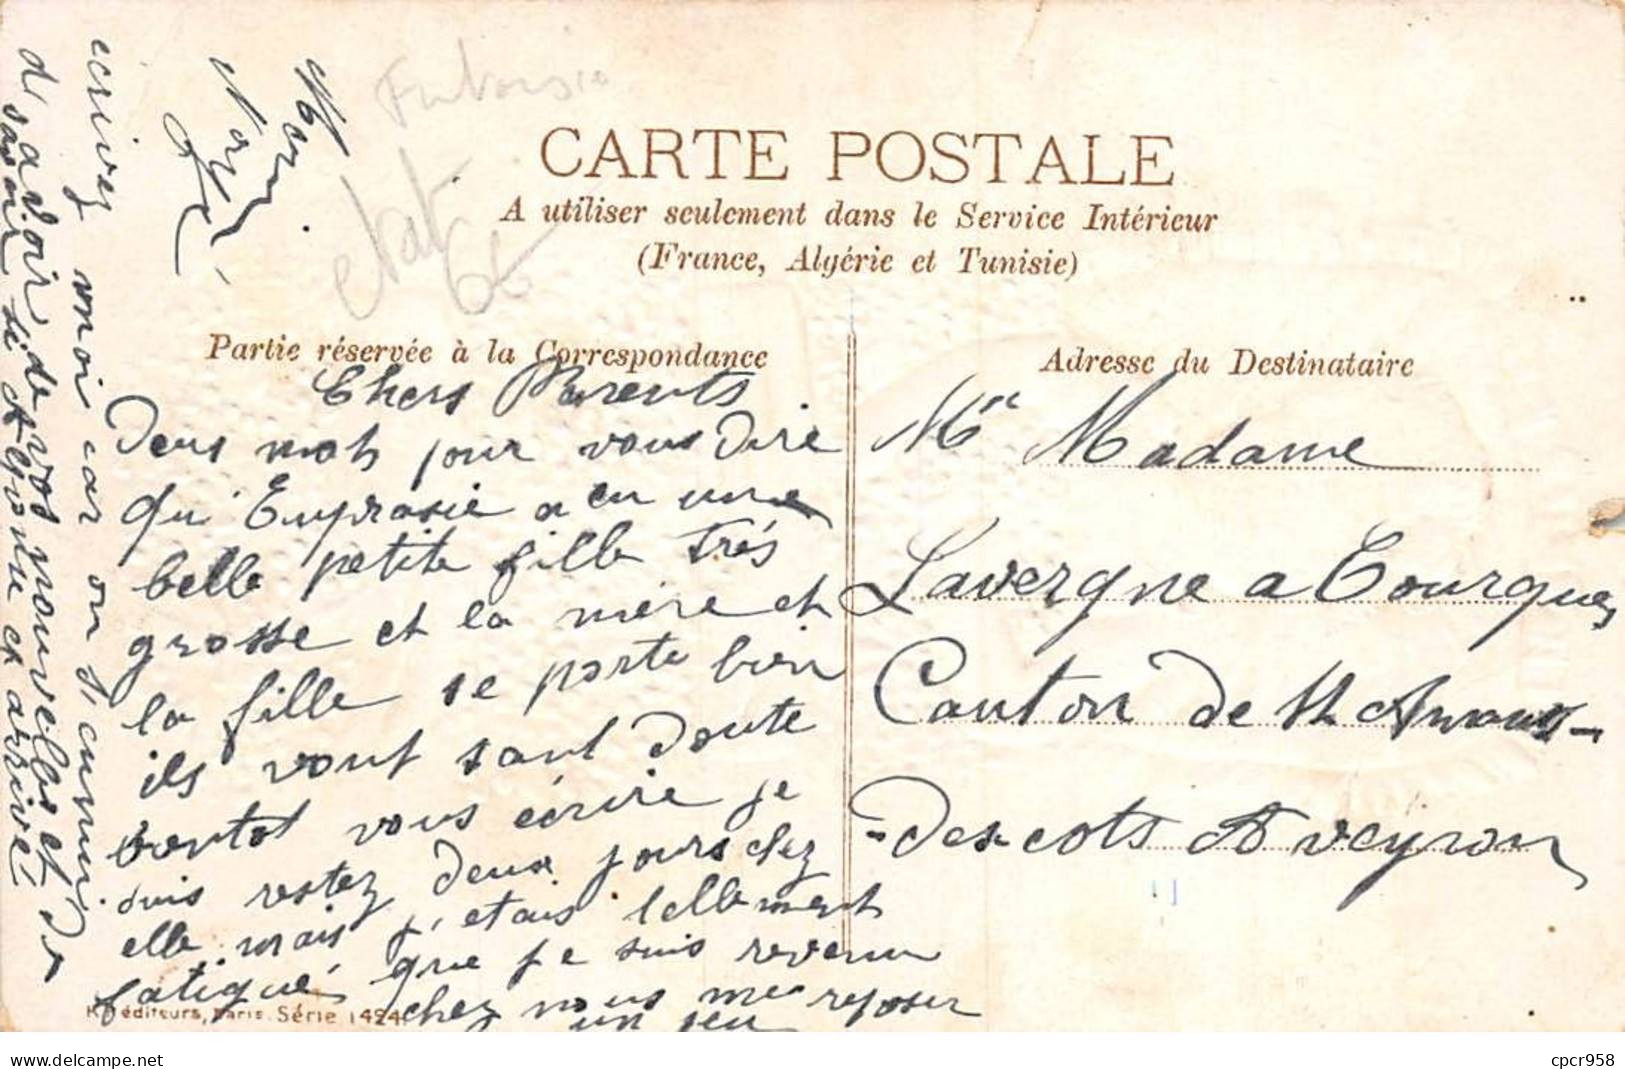 CARTE POSTALE
A utiliser seulement dans le Service Intérieur
(France, Algérie et Tunisie)
Partie réservée à la Correspondance
Adresse du Destinataire
Chers Parents
Deus mots pour vous dire
qu' Emprasie a eu une
belle petite fille très
grosse et la mère et
la fille se porte bien
ils vont sant doute
bentot vous écrire je
suis restez deux jours chez
elle mais j'etais tellement
fatigué que je suis revenu
chez nous me reposer
un peu
ecrivez moi car on s'ennui
d'avoir de vos nouvelles et de
savoir si Antoine et arrivé
Mme Madame
Lavergne a Tourques
Canton de St Amans-
-des-cots Aveyron
K. éditeurs, Paris. Série 1424
cpcr958
www.delcampe.net